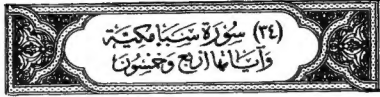 (٣٤) سُورَة سَبَإ مَكيَّة
وَآيَاتُهَا أَرْبَع وَخَمْسُونَ